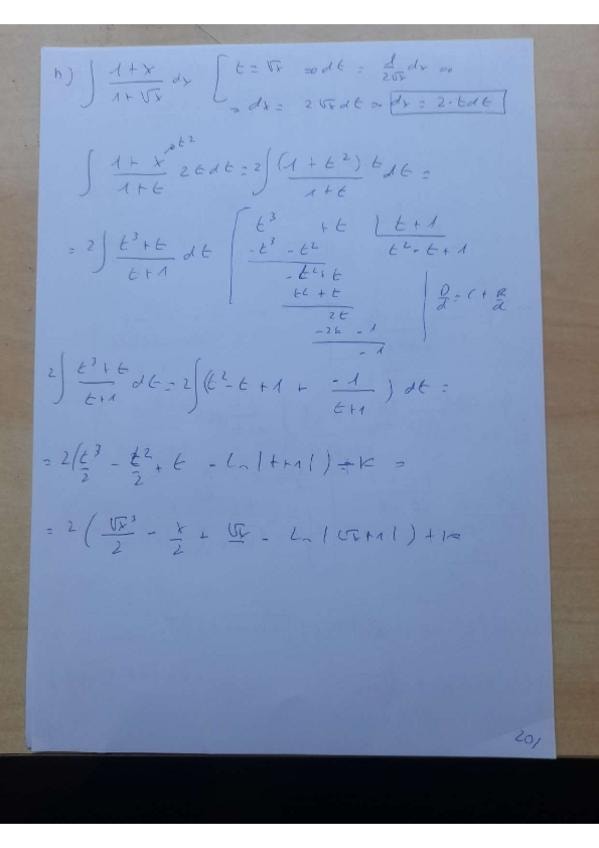 h) ∫ (1+x)/(1+√x) dx [ t = √x ⇒ dt = 1/(2√x) dx ⇒
⇒ dx = 2√x dt ⇒ dx = 2·t dt
∫ (1+x→t²)/(1+t) 2t dt = 2∫ ((1+t²) t)/(1+t) dt =
= 2∫ (t³+t)/(t+1) dt [ t³ +t | t+1
-t³ -t² t²-t+1
-t²+t
+t²+t D/d = C + R/d
2t
-2t -1
-1
2∫ (t³+t)/(t+1) dt = 2∫ (t²-t+1 + -1/(t+1)) dt =
= 2(t³/2 - t²/2 + t - Ln|t+1|) + K =
= 2(√x³/2 - x/2 + √x - Ln|√x+1|) + K
20/